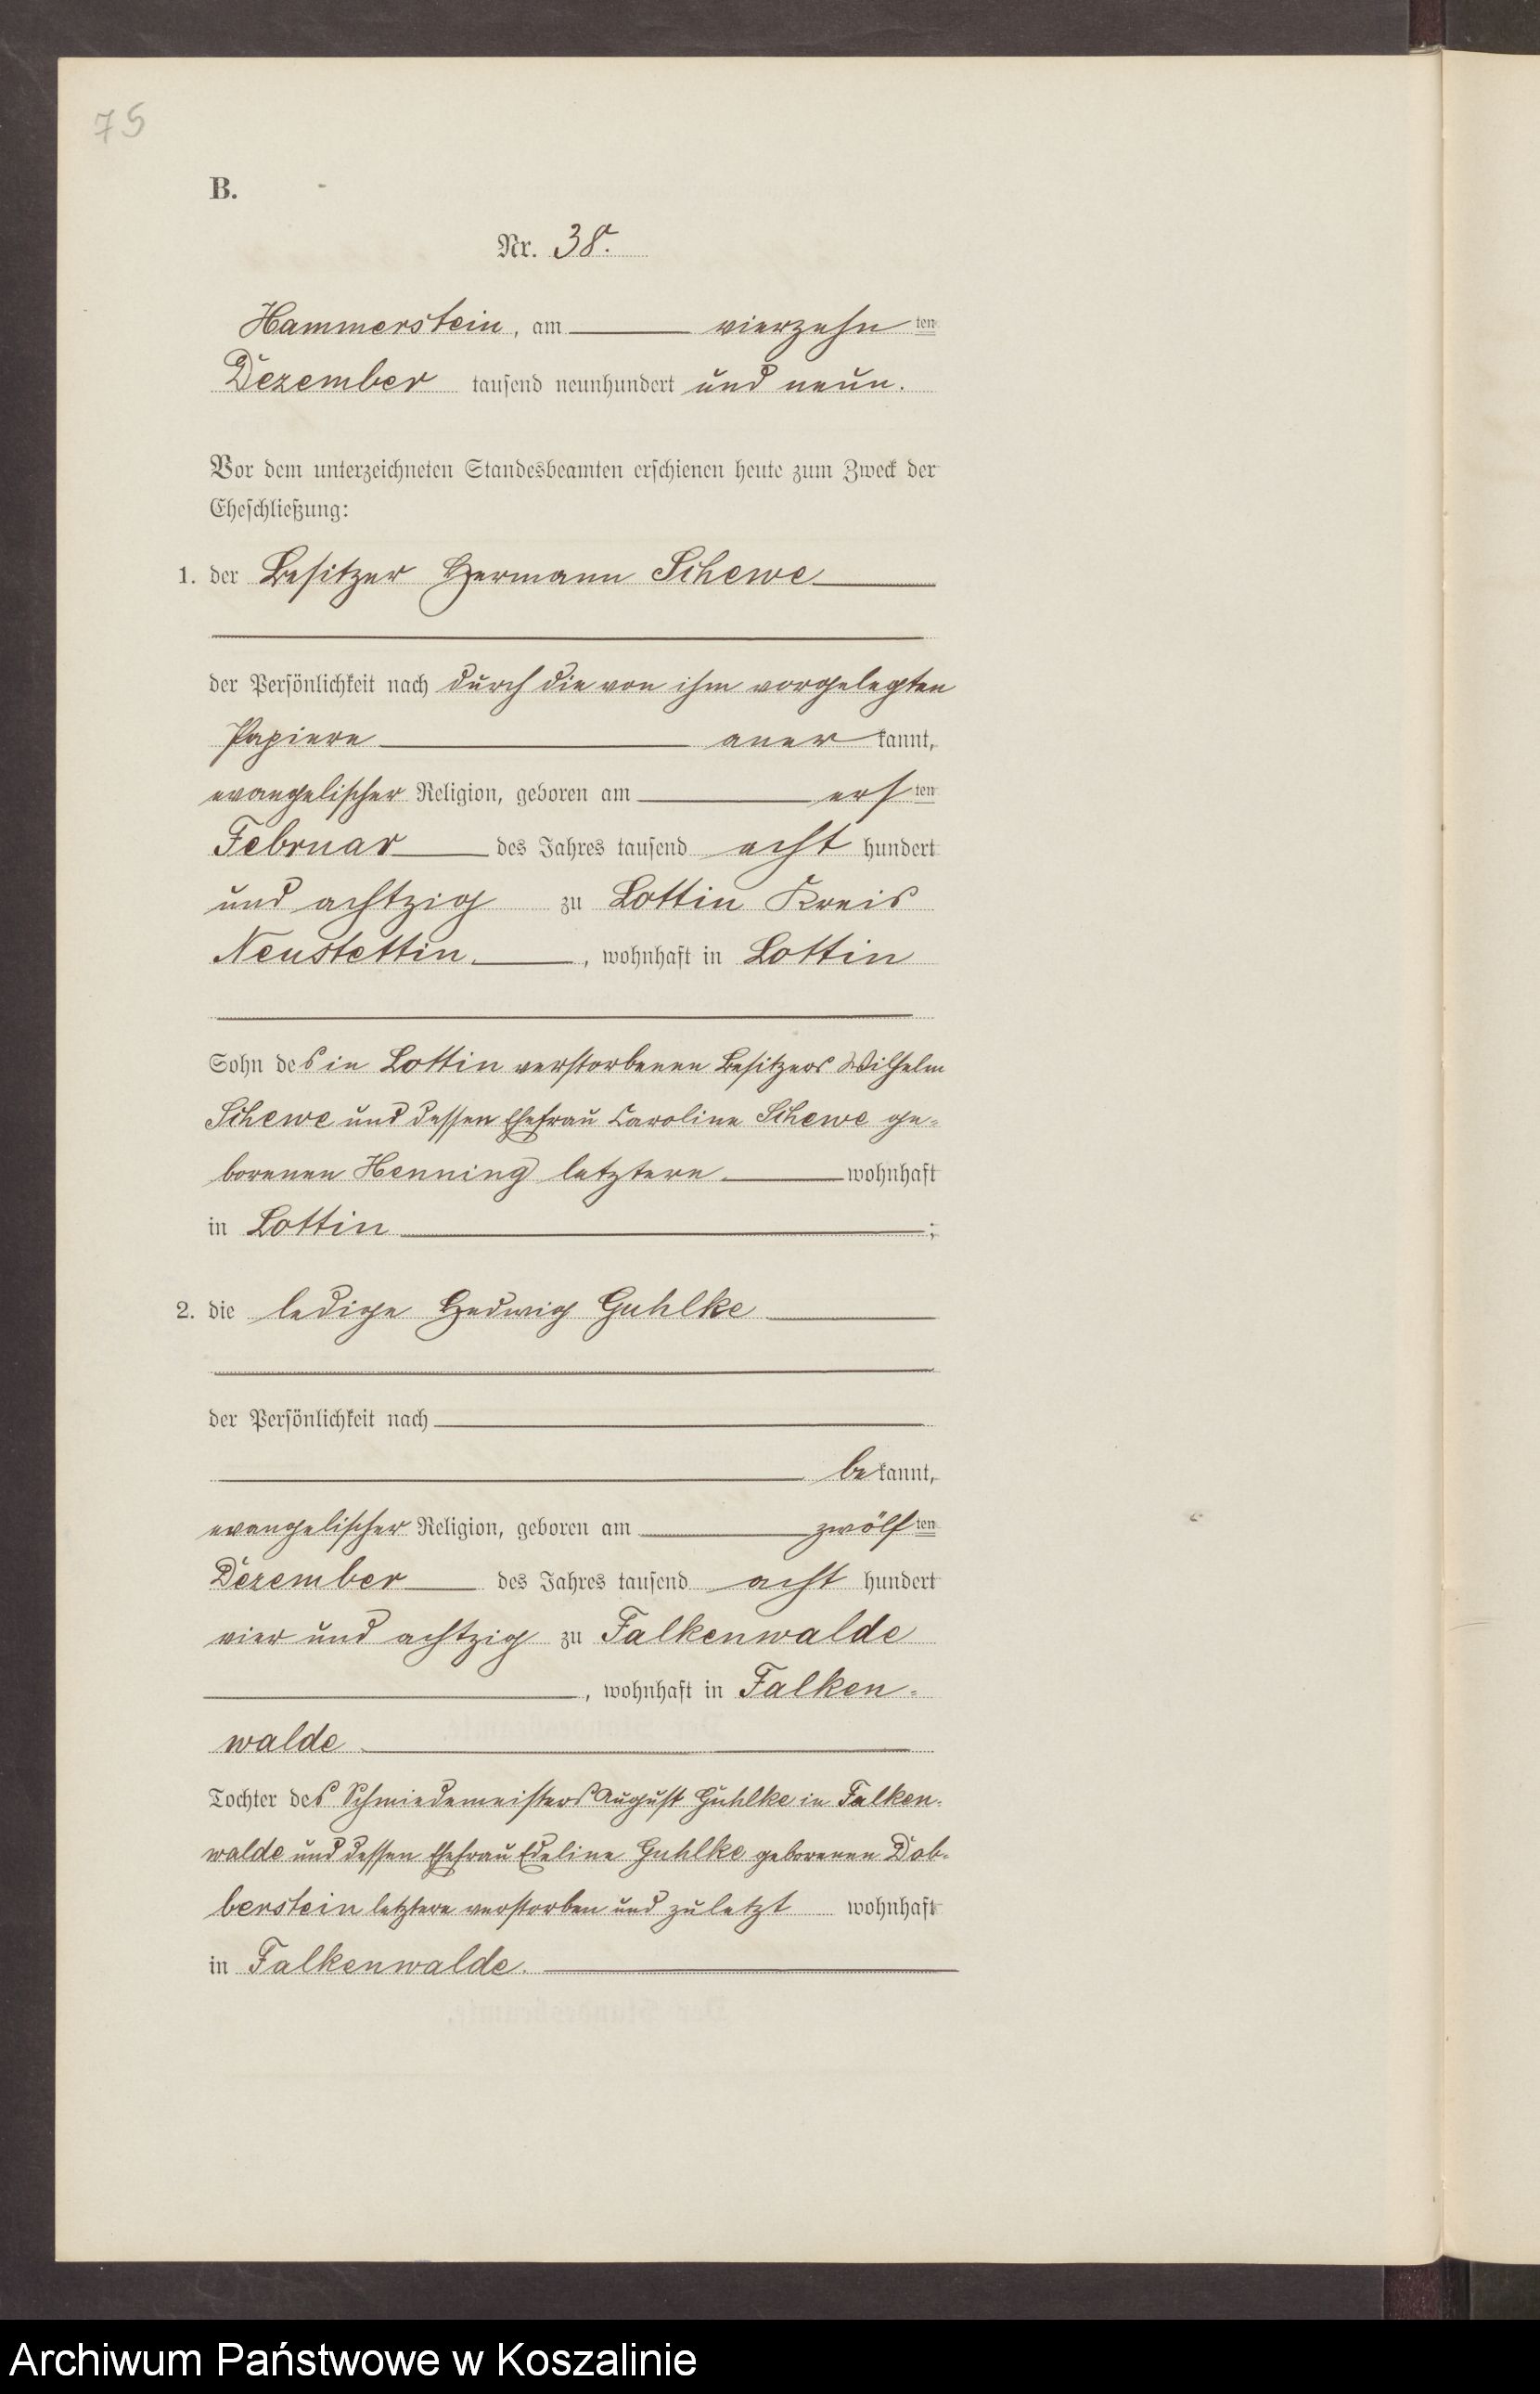 75
B.
Nr. 38.
Hammerstein, am vierzehn ten
Dezember tausend neunhundert und neun.
Vor dem unterzeichneten Standesbeamten erschienen heute zum Zweck der
Eheschließung:
1. der Besitzer Hermann Schewe
der Persönlichkeit nach durch die von ihm vorgelegten
Papiere aner kannt,
evangelischer Religion, geboren am ers ten
Februar des Jahres tausend acht hundert
und achtzig zu Lottin Kreis
Neustettin, wohnhaft in Lottin
Sohn des in Lottin verstorbenen Besitzers Wilhelm
Schewe und dessen Ehefrau Caroline Schewe ge-
borenen Henning letztere wohnhaft
in Lottin ;
2. die ledige Hedwig Guhlke
der Persönlichkeit nach
be kannt,
evangelischer Religion, geboren am zwölf ten
Dezember des Jahres tausend acht hundert
vier und achtzig zu Falkenwalde
, wohnhaft in Falken-
walde
Tochter des Schmiedemeisters August Guhlke in Falken-
walde und dessen Ehefrau Edeline Guhlke geborenen Dob-
berstein letztere verstorben und zuletzt wohnhaft
in Falkenwalde.
Archiwum Państwowe w Koszalinie